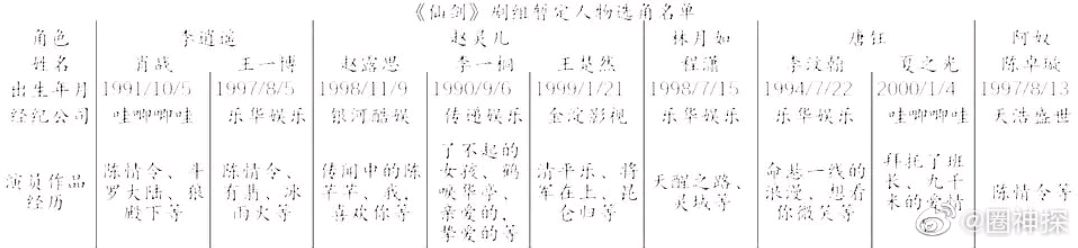 《仙剑》剧组暂定人物选角名单
角色 李逍遥 赵灵儿 林月如 唐钰 阿奴
姓名 肖战 王一博 赵露思 李一桐 王楚然 程潇 李汶翰 夏之光 陈卓璇
出生年月 1991/10/5 1997/8/5 1998/11/9 1990/9/6 1999/1/21 1998/7/15 1994/7/22 2000/1/4 1997/8/13
经纪公司 哇唧唧哇 乐华娱乐 银河酷娱 传递娱乐 金淀影视 乐华娱乐 乐华娱乐 哇唧唧哇 天浩盛世
演员作品经历
陈情令、斗
罗大陆、狼
殿下等
陈情令、
有翡、冰
雨火等
传闻中的陈
芊芊、我,
喜欢你等
了不起的
女孩、鹤
唳华亭、
亲爱的,
挚爱的等
清平乐、将
军在上、昆
仑归等
天醒之路、
灵域等
命悬一线的
浪漫、想看
你微笑等
拜托了班
长、九千
米的爱情
陈情令等
@圈神探